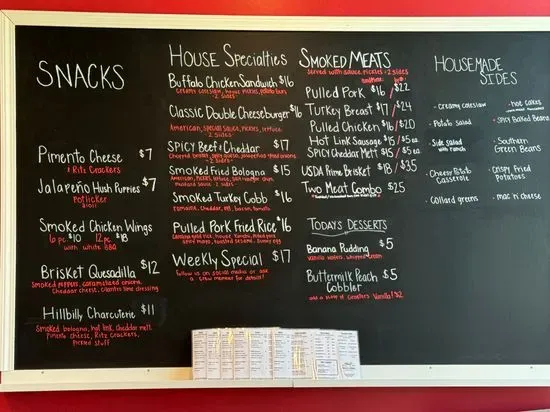 SNACKS
Pimento Cheese $7
& Ritz Crackers
Jalapeño Hush Puppies $7
Potlicker
Smoked Chicken Wings
6 pc. $10 12 pc. $18
with white BBQ
Brisket Quesadilla $12
smoked peppers, caramelized onion,
cheddar cheese, cilantro lime dressing
Hillbilly Charcuterie $11
Smoked bologna, hot link, cheddar melt
Pimento cheese, Ritz crackers,
Pickled stuff
HOUSE Specialties
Buffalo Chicken Sandwich $16
creamy coleslaw, house pickles, potato buns
- 2 sides
Classic Double Cheeseburger $16
American, special sauce, pickles, lettuce
- 2 sides
SPICY Beef & Cheddar $17
- 2 sides
Smoked Fried Bologna $15
American, pickles, lettuce
mustard sauce - 2 sides
Smoked Turkey Cobb $16
romaine, cheddar, egg, bacon, tomato
Pulled Pork Fried Rice $16
spicy mayo, toasted sesame, sunny egg
Weekly Special $17
Follow us on social media or ask
a crew member for details!
Smoked Meats
served with sauce, pickles + 2 sides
Pulled Pork $16 / $22
Turkey Breast $17 / $24
Pulled Chicken $16 / $20
Hot Link Sausage $15 / $5 ea
Spicy Cheddar Melt $15 / $5 ea
USDA Prime Brisket $18 / $35
Two Meat Combo $25
Todays Desserts
Banana Pudding $5
vanilla wafers, whipped cream
Buttermilk Peach $5
Cobbler
Vanilla! $2
Housemade
Sides
- creamy coleslaw
- Potato salad
- Side salad
with ranch
- Cheesy Potato
Casserole
- collard greens
- hoe cakes
- Spicy Baked Beans
- Southern
Green Beans
- Crispy Fried
Potatoes
- mac n' cheese